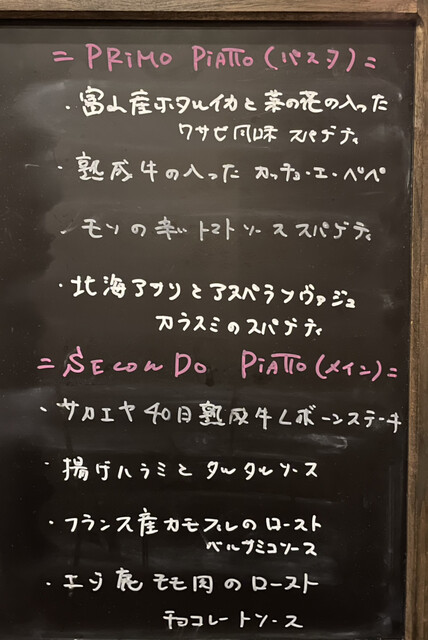 = PRIMO PIATTO (パスタ) =
・富山産ホタルイカと菜の花の入った
ワサビ風味 スパゲティ
・熟成牛の入った カッチョ・エ・ペペ
・モツの辛いトマトソース スパゲティ
・北海アサリとアスペランソヴァジュ
カラスミのスパゲティ
= SECONDO PIATTO (メイン) =
・サカエヤ 40日熟成牛Lボーンステーキ
・揚げハラミと タルタルソース
・フランス産カモフィレのロースト
バルサミコソース
・エゾ鹿 モモ肉のロースト
チョコレートソース